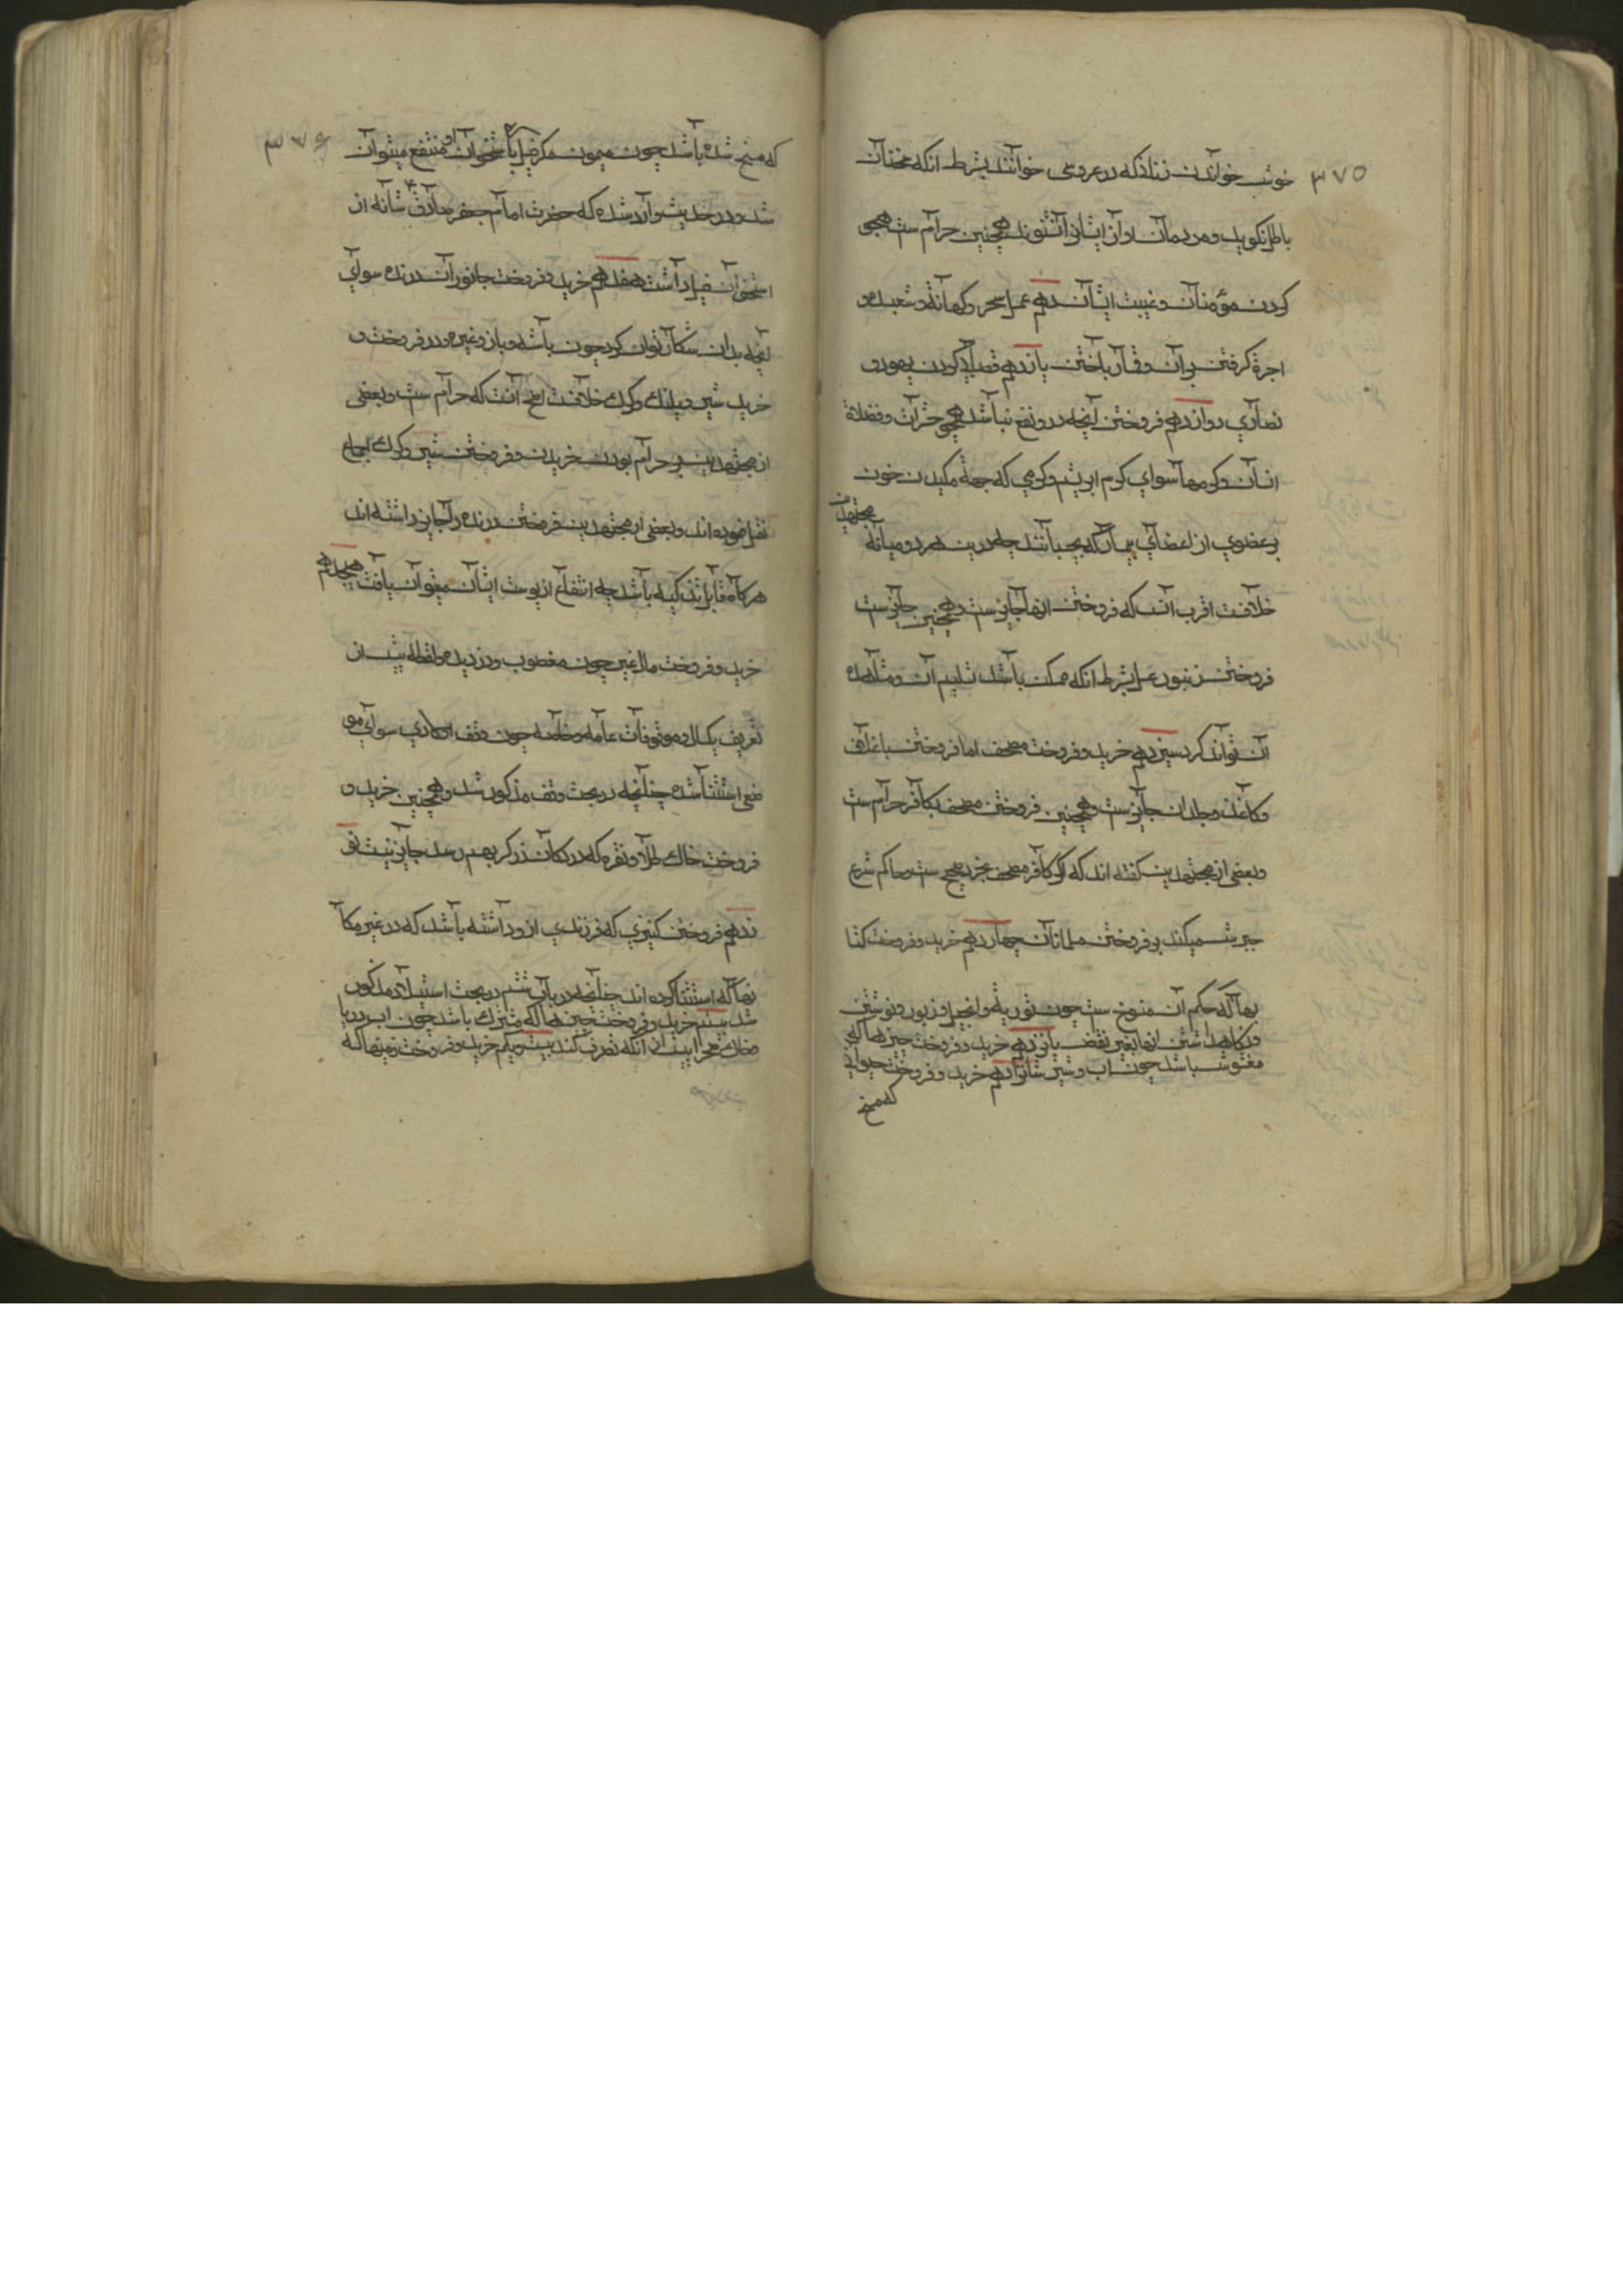 ۳۷۵
خوش خواندن زنانکه در عروسی خوانند بشرط انکه سخنان
باطل نگوید و مردمان آواز ایشانرا نشنوند همچنین حرام ست هجو
کردن مؤمنان و غیبت ایشان دهم عمل سحر و کهانة و شعبده و
اجرة کرفتن بر آن و قمار باختن یازدهم قصد کردن یهود و
نصاری دوازدهم فروختن آنچه درو نفع نباشد همچو حشرات و فضلاة
انسان و کرمها سوای کرم ابریشم و کرمی که جهة مکیدن خون
بر عضوی از اعضای بیمار که بچسبانند چه درین هر دو میانه مجتهدین
خلافست اقرب آنست که فروختن انها جایز ست و همچنین جایز ست
فروختن زنبور عسل بشرط انکه ممکن باشد تسلیم آن و مشاهده
آن تواند کرد سیزدهم خرید و فروخت مصحف اما فروختن با غلاف
و کاغذ و جلد ان جایز ست و همچنین فروختن مصحف بکافر حرام ست
و بعضی از مجتهدین کفته اند که اکر کافر مصحف بخرد صحیح ست و حاکم شرع
جبرش میکند بر فروختن مسلمانان چهاردهم خرید و فروخت کتا
بها که حکم آن منسوخ ست چون توریة و انجیل و زبور و نوشتن
و نکاهداشتن انها بغیر نقض پانزدهم خرید و فروخت چیزها که
مغشوش باشد چون اب و شیر شانزدهم خرید و فروخت حیوانی
که مسخ
۳۷۶
که مسخ شده باشد چون میمون مکر فیل که باستخوان او منتفع میتوان
شد و در حدیث وارد شده که حضرت امام جعفر صادق ع شانه از
استخوان فیل داشت هفدهم خرید و فروخت جانوران درنده سوای
آنچه بدان شکار توان کرد چون باشه و باز و غیره و در فروخت و
خرید شیر و پلنك و کرك خلافست اصح آنست که حرام ست و بعضی
از مجتهدین بر حرام بودن خریدن و فروختن شیر و کرك اجماع
نقل نموده اند و بعضی از مجتهدین فروختن درنده را جایز داشته اند
هرکاه قابل تذکیه باشد چه انتفاع از پوست ایشان میتوان یافت هجدهم
خرید و فروخت مال غیر چون مغصوب و دزدیده و لقطه پیش از
تعریف یکسال و موقوفات عامه و خاصه چون وقف اولادی سوای مو
ضع استثنا شده چنانچه در بحث وقف مذکور شد و همچنین خرید و
فروخت خاك طلا و نقره که در دکان زرکر بهم رسد جایز نیست نو
زدهم فروختن کنیزی که فرزندی ازو داشته باشد که در غیر مکا
نها که استثنا کرده اند چنانچه در باب ششم در بحث استیلاد مذکور
شد بیستم خرید و فروخت چیزها که مشترك باشد چون اب دریا
و خاك صحرا پیش از انکه تصرف کند بیست و یکم خرید و فروخت زمینها که